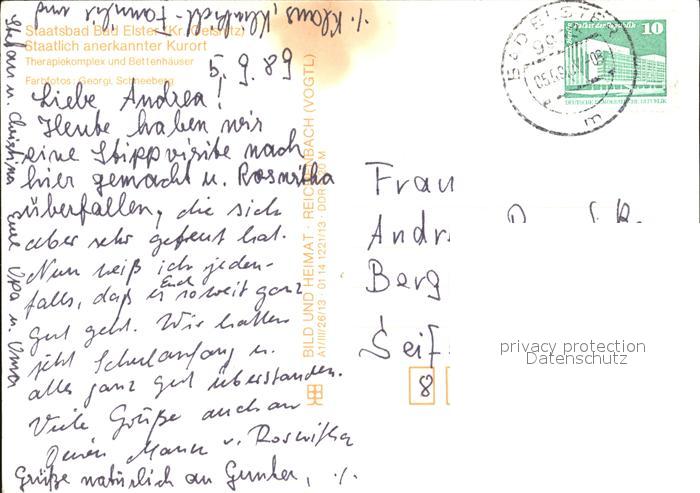 Staatsbad Bad Elster (Kr. Oelsnitz)
Staatlich anerkannter Kurort
Therapiekomplex und Bettenhäuser
Farbfotos: Georgi, Schneeberg
5.9.89
Liebe Andrea!
Heute haben wir
eine Stippvisite nach
hier gemacht u. Roswitha
überfallen, die sich
aber sehr gefreut hat.
Nun weiß ich jeden-
falls, daß es Euch soweit ganz
gut geht. Wir hatten
jetzt Schulanfang u.
alles ganz gut überstanden.
Viele Grüße auch an
Deinen Mann v. Roswitha
Grüße natürlich an Gunter, ./.
./. Klaus, Familie und
Stefan u. Christina Eure Opa u. Oma
BILD UND HEIMAT · REICHENBACH (VOGTL)
A1/III/26/13 01 14 1221/13 · DDR M
Frau
Andr
Berg
Seif
8
BAD ELSTER
99
05.09.89
m
Berlin, Palast der Republik
10
DEUTSCHE DEMOKRATISCHE REPUBLIK
privacy protection
Datenschutz